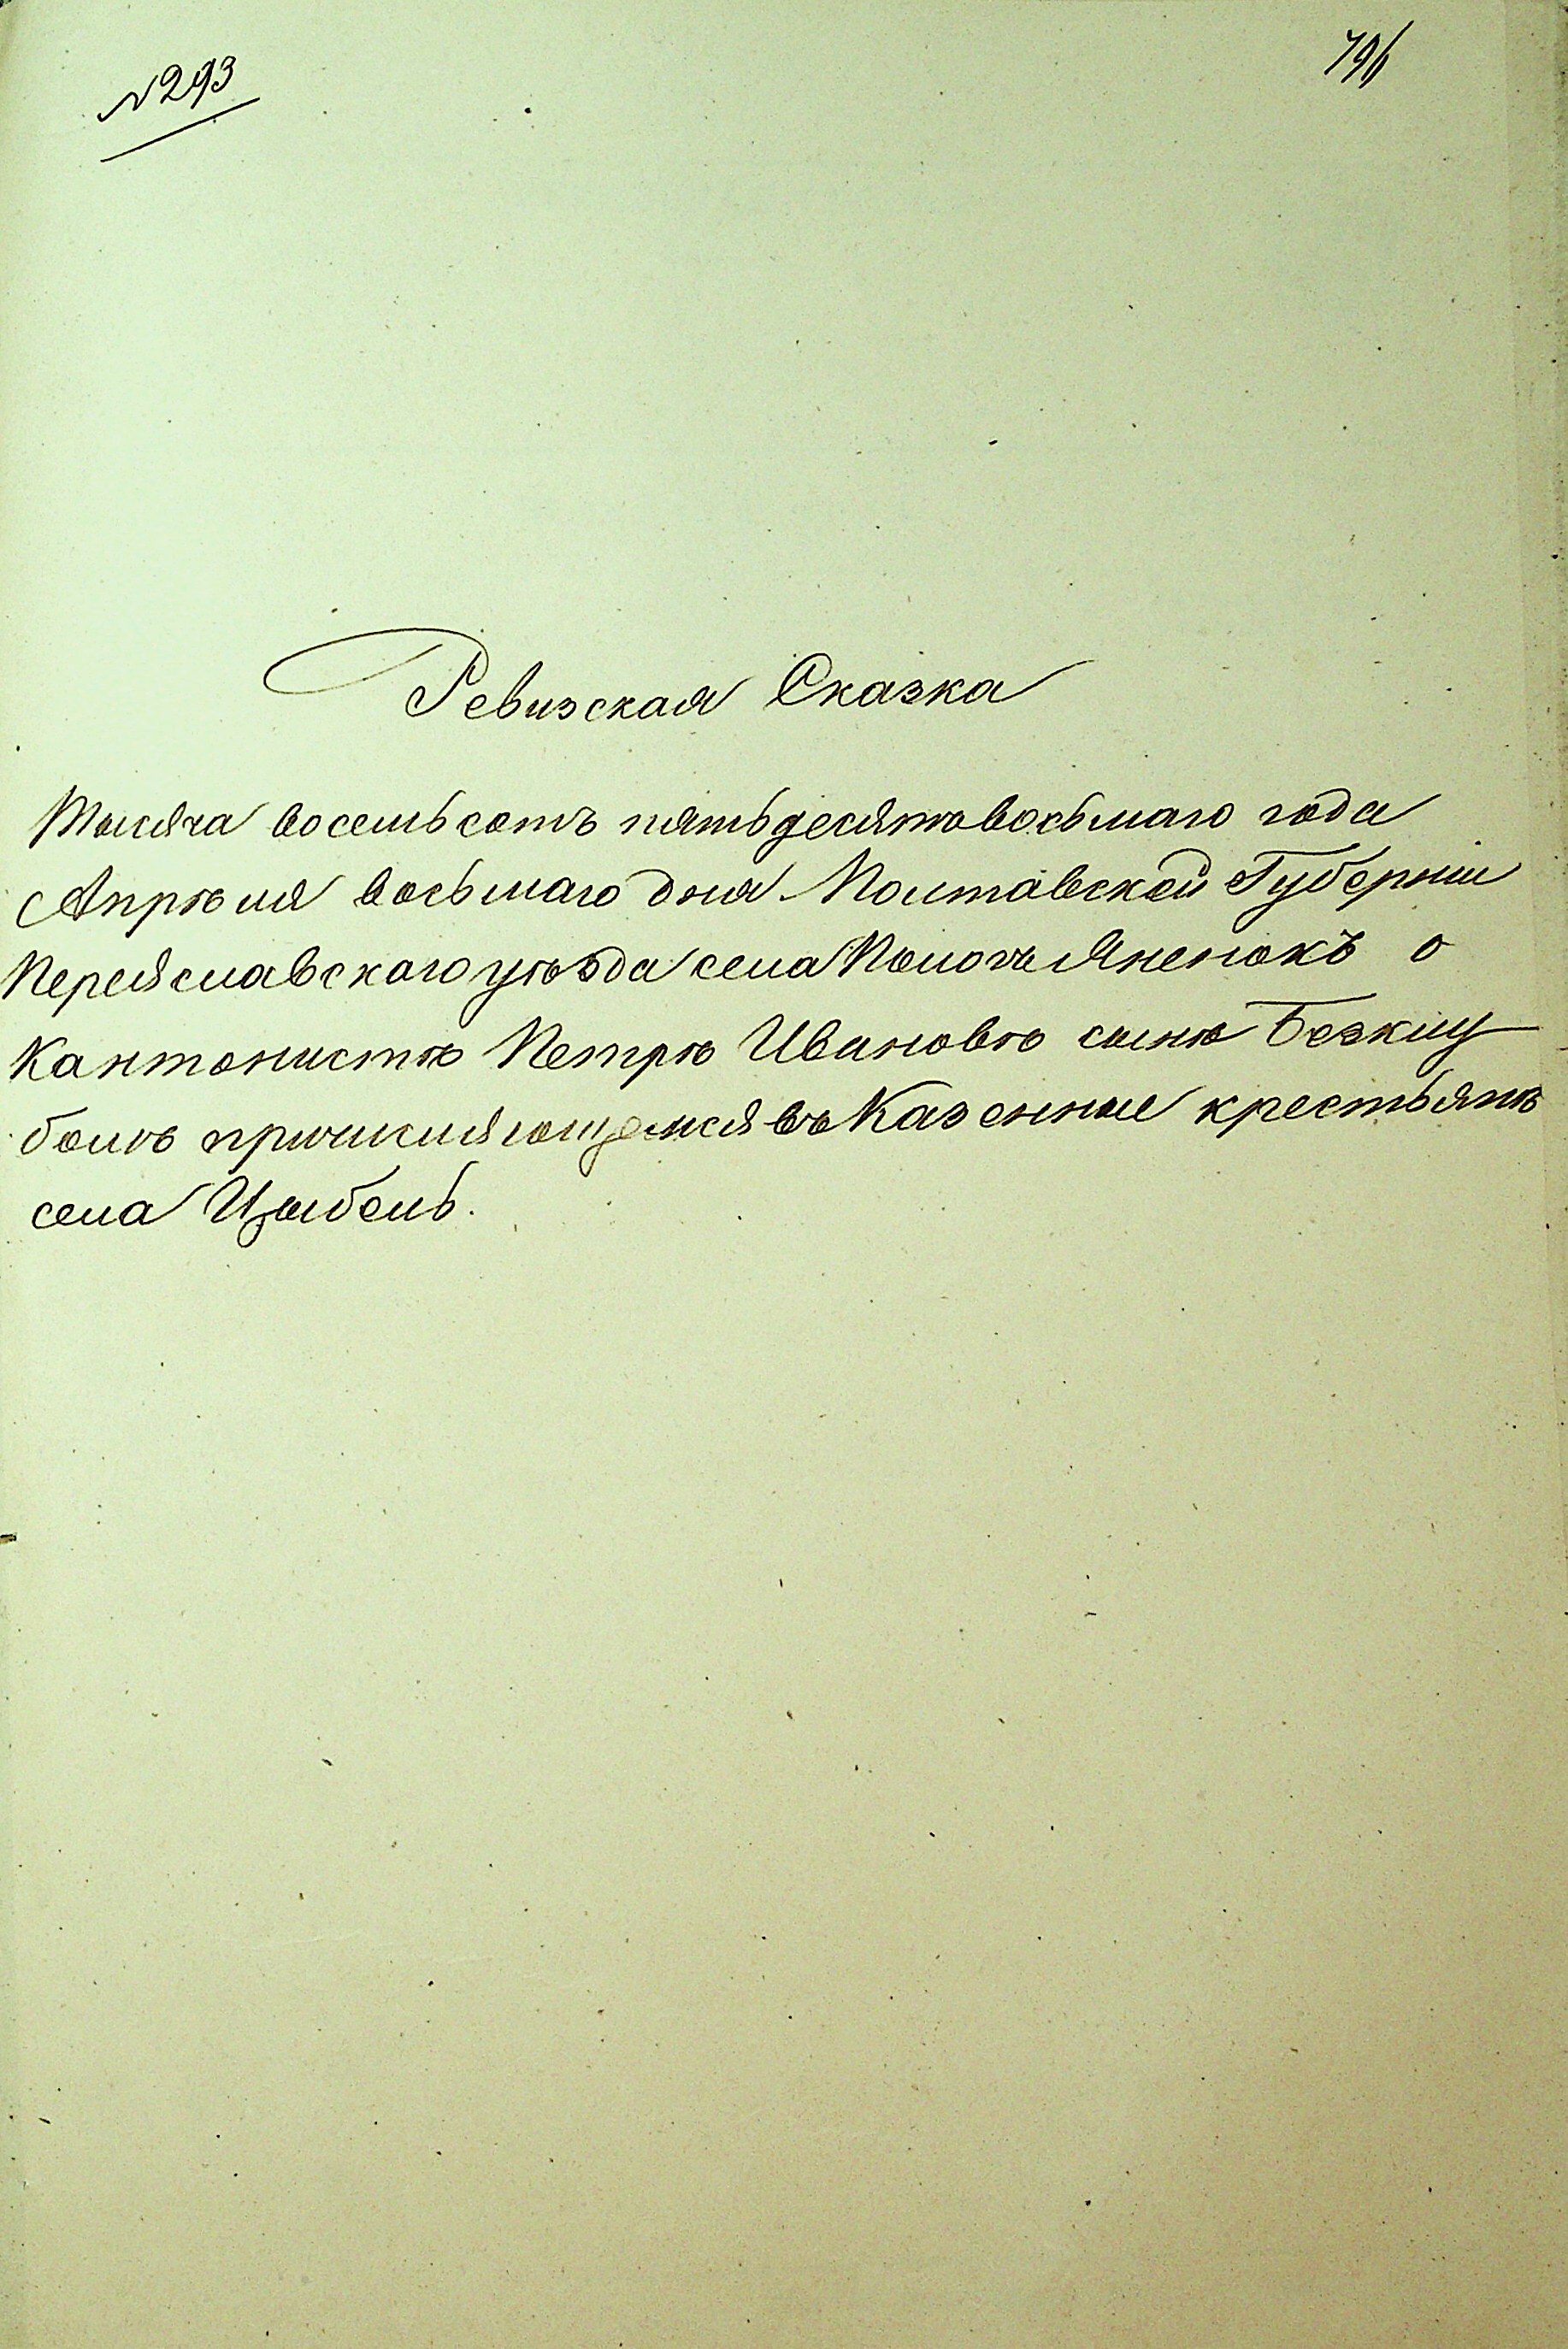 №293
796
Ревизская Сказка
Тысяча восемьсотъ пятьдесятовосьмаго года
Апрѣля восьмаго дня Полтавской Губерніи
Переяславскаго уѣзда села Помоклянокъ о
Кантонистѣ Петрѣ Ивановѣ сынѣ
причисляющемся въ Казенные крестьянѣ
села Цыбель.